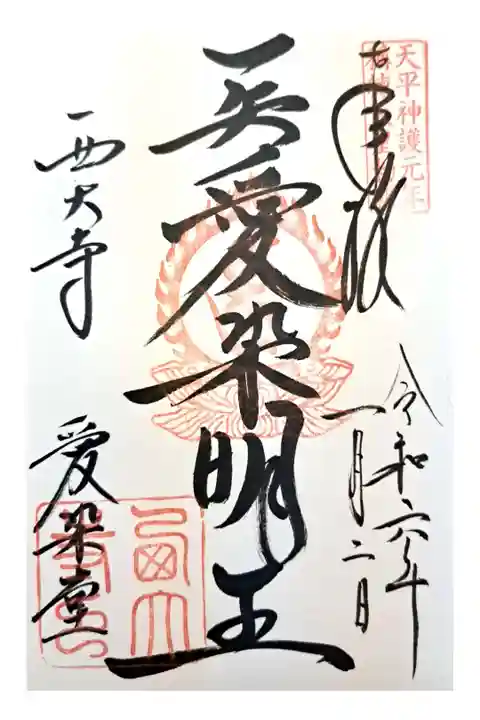 天平神護元年
奉拝
令和六年
一月二日
愛染明王
西大寺
愛染堂